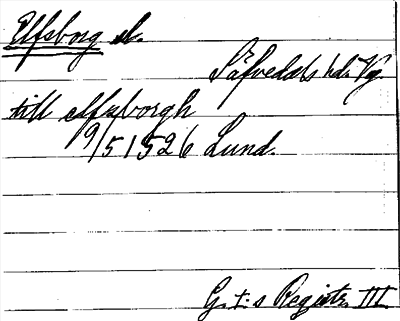 Elfsborg sl.
Säfvedals hd. Vg.
till elffzborgh
9/5 1526 Lund.
G. I:s Registr. III.